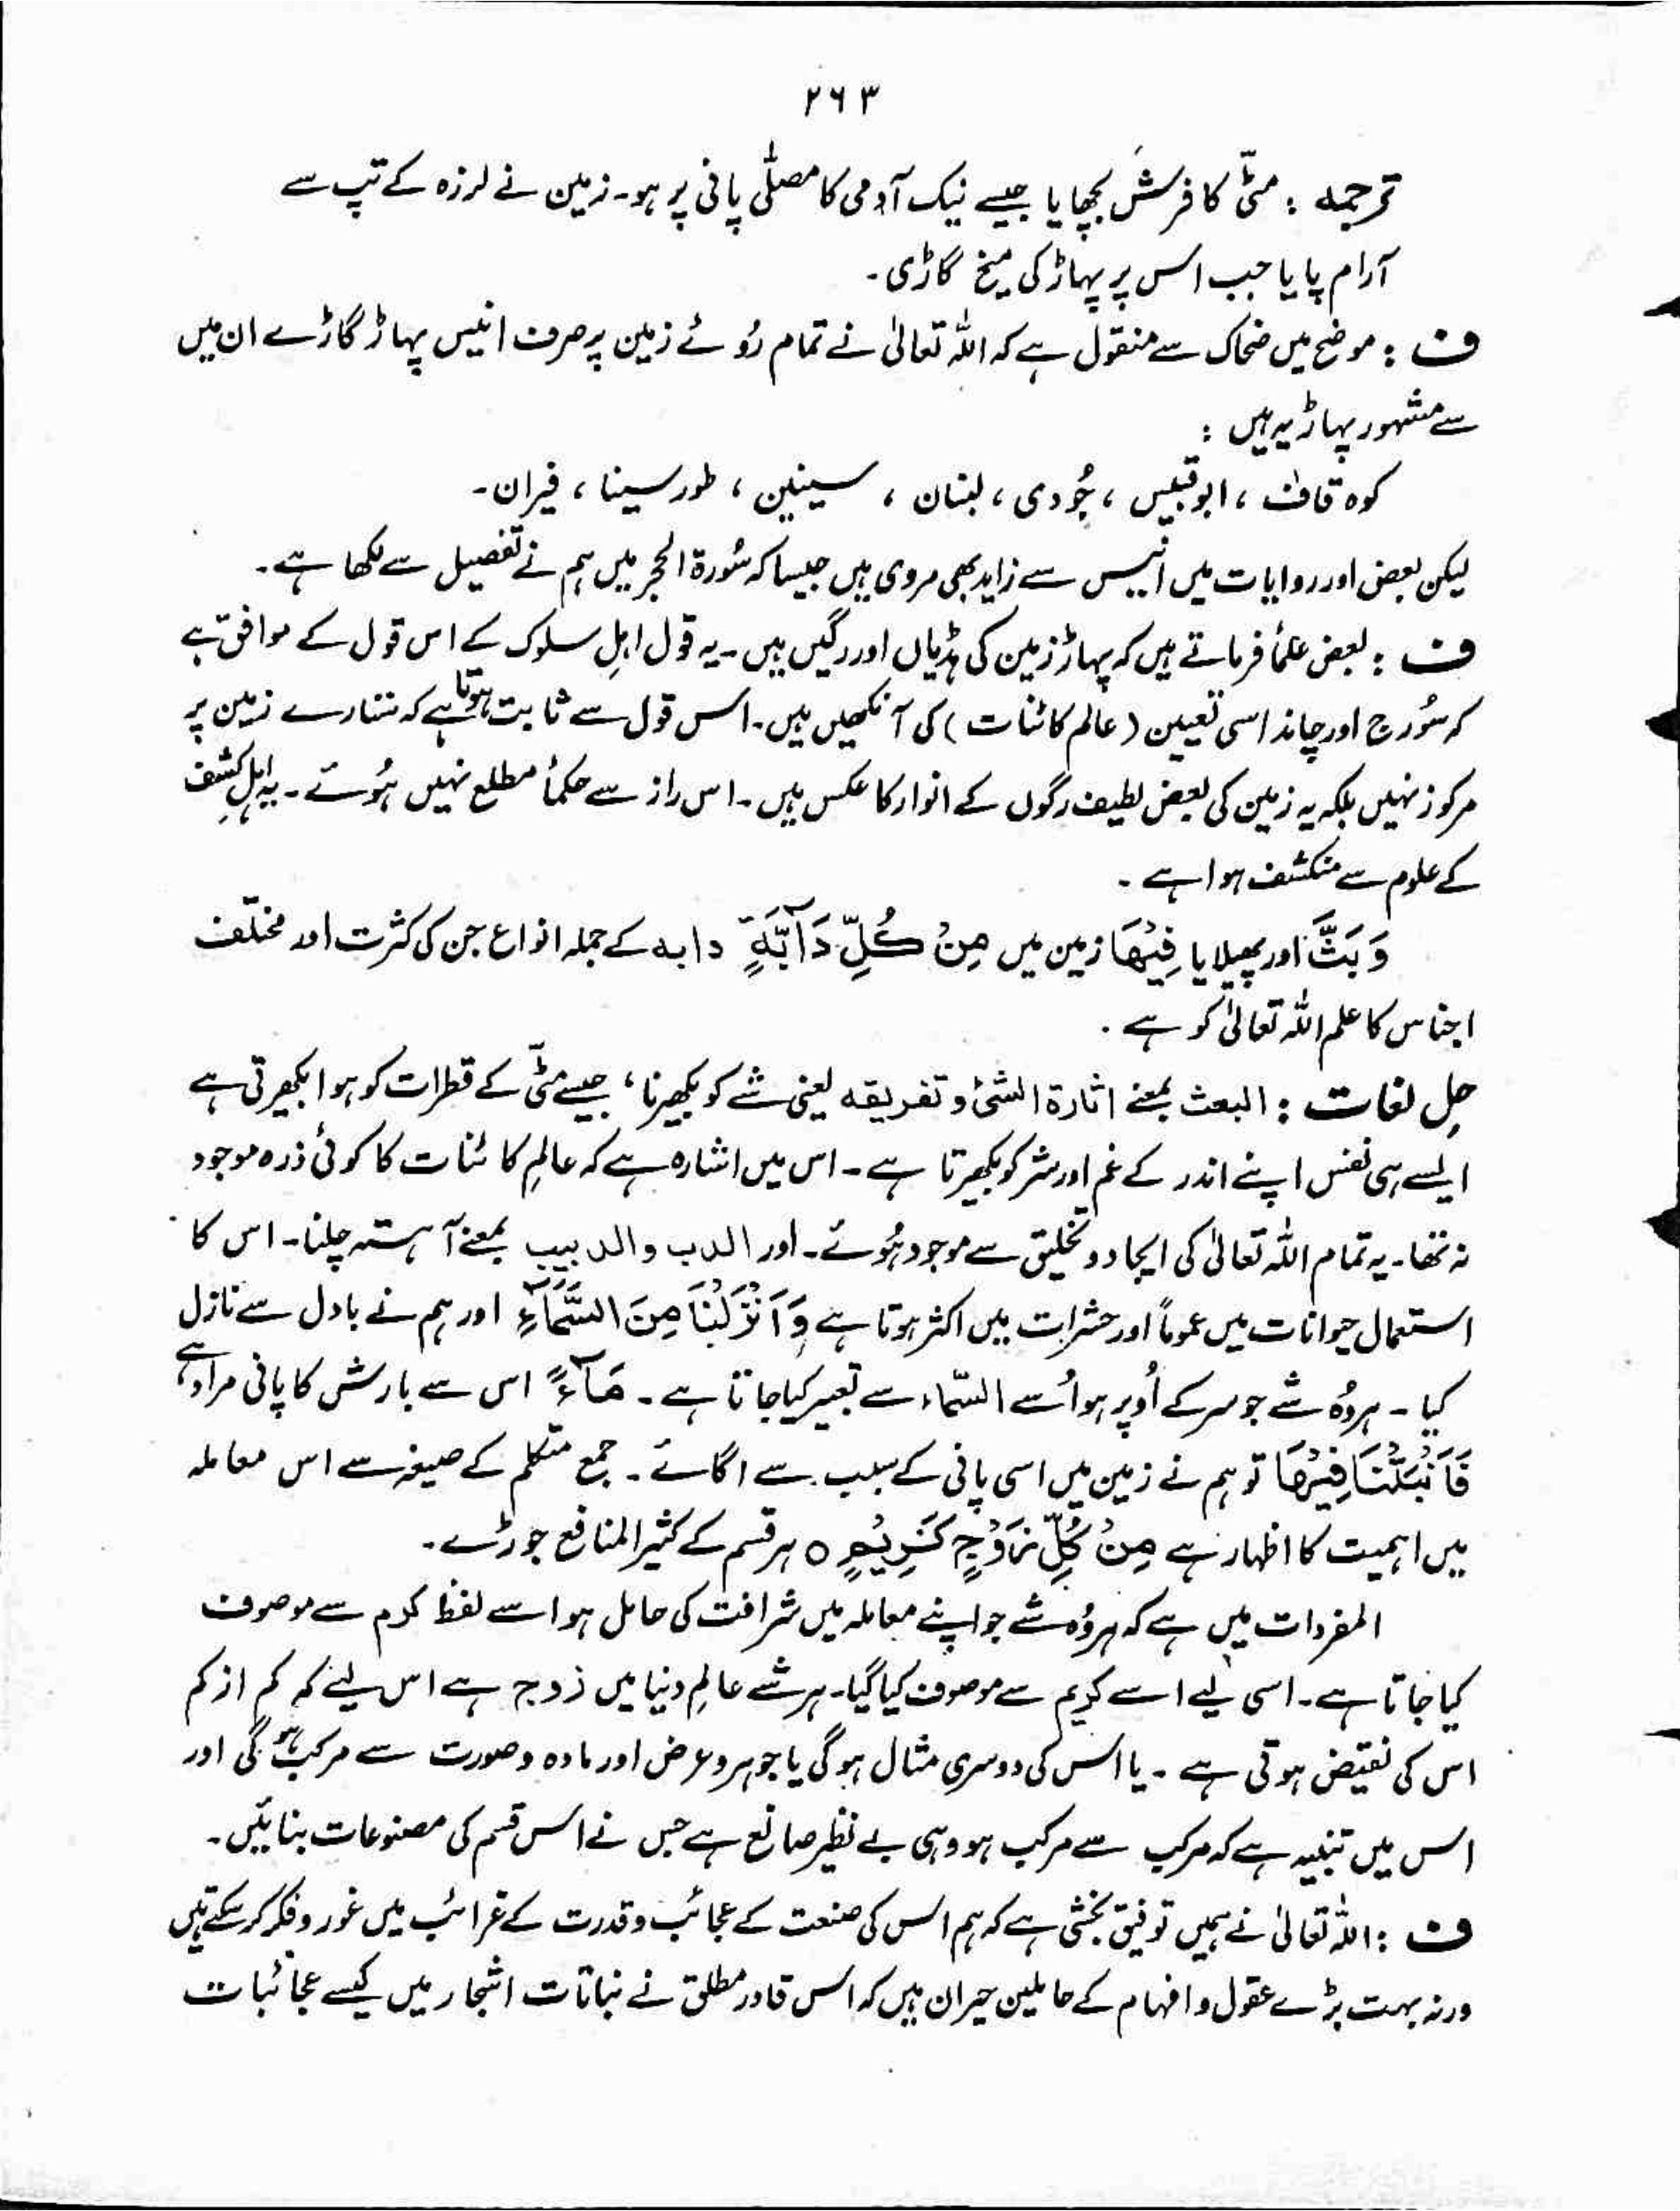 ۲۶۳
ترجمہ : مٹی کا فرش بچھایا جیسے نیک آدمی کا مصلّٰی پانی پر ہو۔ زمین نے لرزہ کے تپ سے
آرام پایا جب اس پر پہاڑ کی میخ گاڑی۔
ف : موضح میں ضحاک سے منقول ہے کہ اللہ تعالیٰ نے تمام رُوئے زمین پر صرف انیس پہاڑ گاڑے ان میں
سے مشہور پہاڑ یہ ہیں :
کوہ قاف ، ابوقبیس ، جُودی ، لبنان ، سینین ، طور سینا ، فیران۔
لیکن بعض اور روایات میں انیس سے زاید بھی مروی ہیں جیسا کہ سُورۃ الحجر میں ہم نے تفصیل سے لکھا ہے۔
ف : بعض علمأ فرماتے ہیں کہ پہاڑ زمین کی ہڈیاں اور رگیں ہیں۔ یہ قول اہلِ سلوک کے اس قول کے موافق ہے
کہ سُورج اور چاند اسی تعیین (عالم کائنات) کی آنکھیں ہیں۔ اس قول سے ثابت ہوتا ہے کہ ستارے زمین پر
مرکوز نہیں بلکہ یہ زمین کی بعض لطیف رگوں کے انوار کا عکس ہیں۔ اس راز سے حکمأ مطلع نہیں ہُوئے۔ یہ اہلِ کشف
کے علوم سے منکشف ہوا ہے ۔
وَبَثَّ اور پھیلایا فِیْھَا زمین میں مِنْ کُلِّ دَآبَّۃٍ دابہ کے جملہ انواع جن کی کثرت اور مختلف
اجناس کا علم اللہ تعالیٰ کو ہے ۔
حلِ لغات : البعث بمعنے اثارۃ الشئ و تفریقہ یعنی شے کو بکھیرنا ، جیسے مٹی کے قطرات کو ہوا بکھیرتی ہے
ایسے ہی نفس اپنے اندر کے غم اور شر کو بکھیرتا ہے۔ اس میں اشارہ ہے کہ عالمِ کائنات کا کوئی ذرہ موجود
نہ تھا۔ یہ تمام اللہ تعالیٰ کی ایجاد و تخلیق سے موجود ہُوئے۔ اور الدب والدبیب بمعنے آہستہ چلنا۔ اس کا
استعمال حیوانات میں عموماً اور حشرات میں اکثر ہوتا ہے وَاَنْزَلْنَا مِنَ السَّمَآءِ اور ہم نے بادل سے نازل
کیا ۔ ہر وُہ شے جو سر کے اُوپر ہو اُسے السّماء سے تعبیر کیا جاتا ہے ۔ مَآءً اس سے بارش کا پانی مراد ہے
فَاَنْبَتْنَا فِیْھَا تو ہم نے زمین میں اسی پانی کے سبب سے اگائے ۔ جمع متکلم کے صیغہ سے اس معاملہ
میں اہمیت کا اظہار ہے مِنْ کُلِّ زَوْجٍ کَرِیْمٍ ٥ ہر قسم کے کثیر المنافع جوڑے۔
المفردات میں ہے کہ ہر وُہ شے جو اپنے معاملہ میں شرافت کی حامل ہو اسے لفظ کرم سے موصوف
کیا جاتا ہے۔ اسی لیے اسے کریم سے موصوف کیا گیا۔ ہر شے عالمِ دنیا میں زوج ہے اس لیے کہ کم از کم
اس کی نقیض ہوتی ہے ۔ یا اس کی دوسری مثال ہوگی یا جوہر و عرض اور مادہ و صورت سے مرکب ہو گی اور
اس میں تنبیہ ہے کہ مرکب سے مرکب ہو وہی بے نظیر صانع ہے جس نے اس قسم کی مصنوعات بنائیں۔
ف : اللہ تعالیٰ نے ہمیں توفیق بخشی ہے کہ ہم اس کی صنعت کے عجائب و قدرت کے غرائب میں غور و فکر کر سکتے ہیں
ورنہ بہت بڑے عقول و افہام کے حاملین حیران ہیں کہ اس قادر مطلق نے نباتات اشجار میں کیسے عجائبات